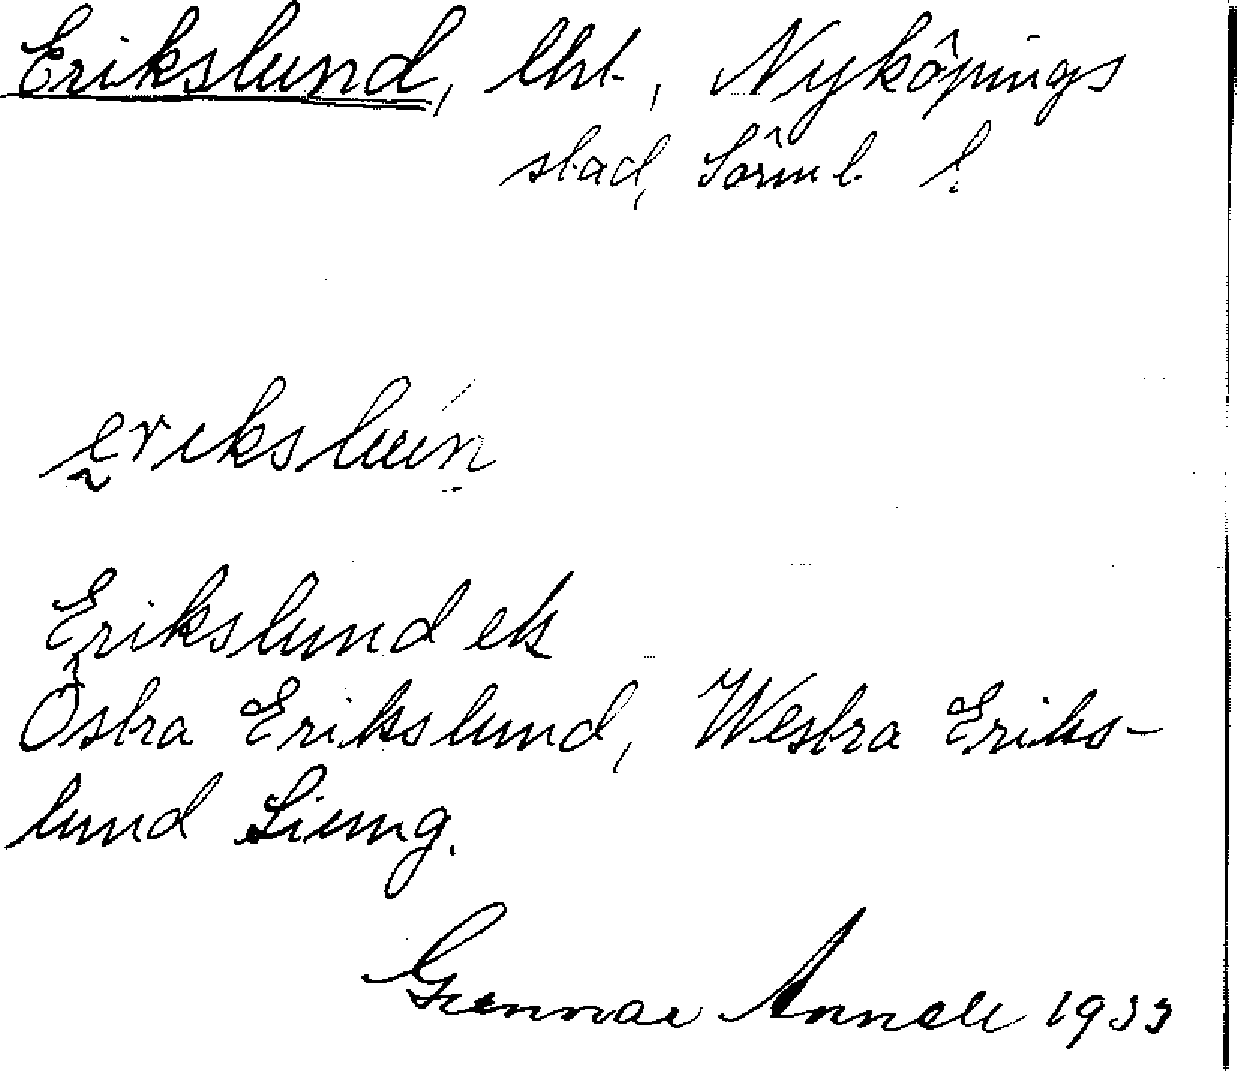 Erikslund, lht, Nyköpings
stad, Sörml. l.
erikslún
Erikslund ek
Östra Erikslund, Westra Eriks-
lund Liung.
Gunnar Annell 1933